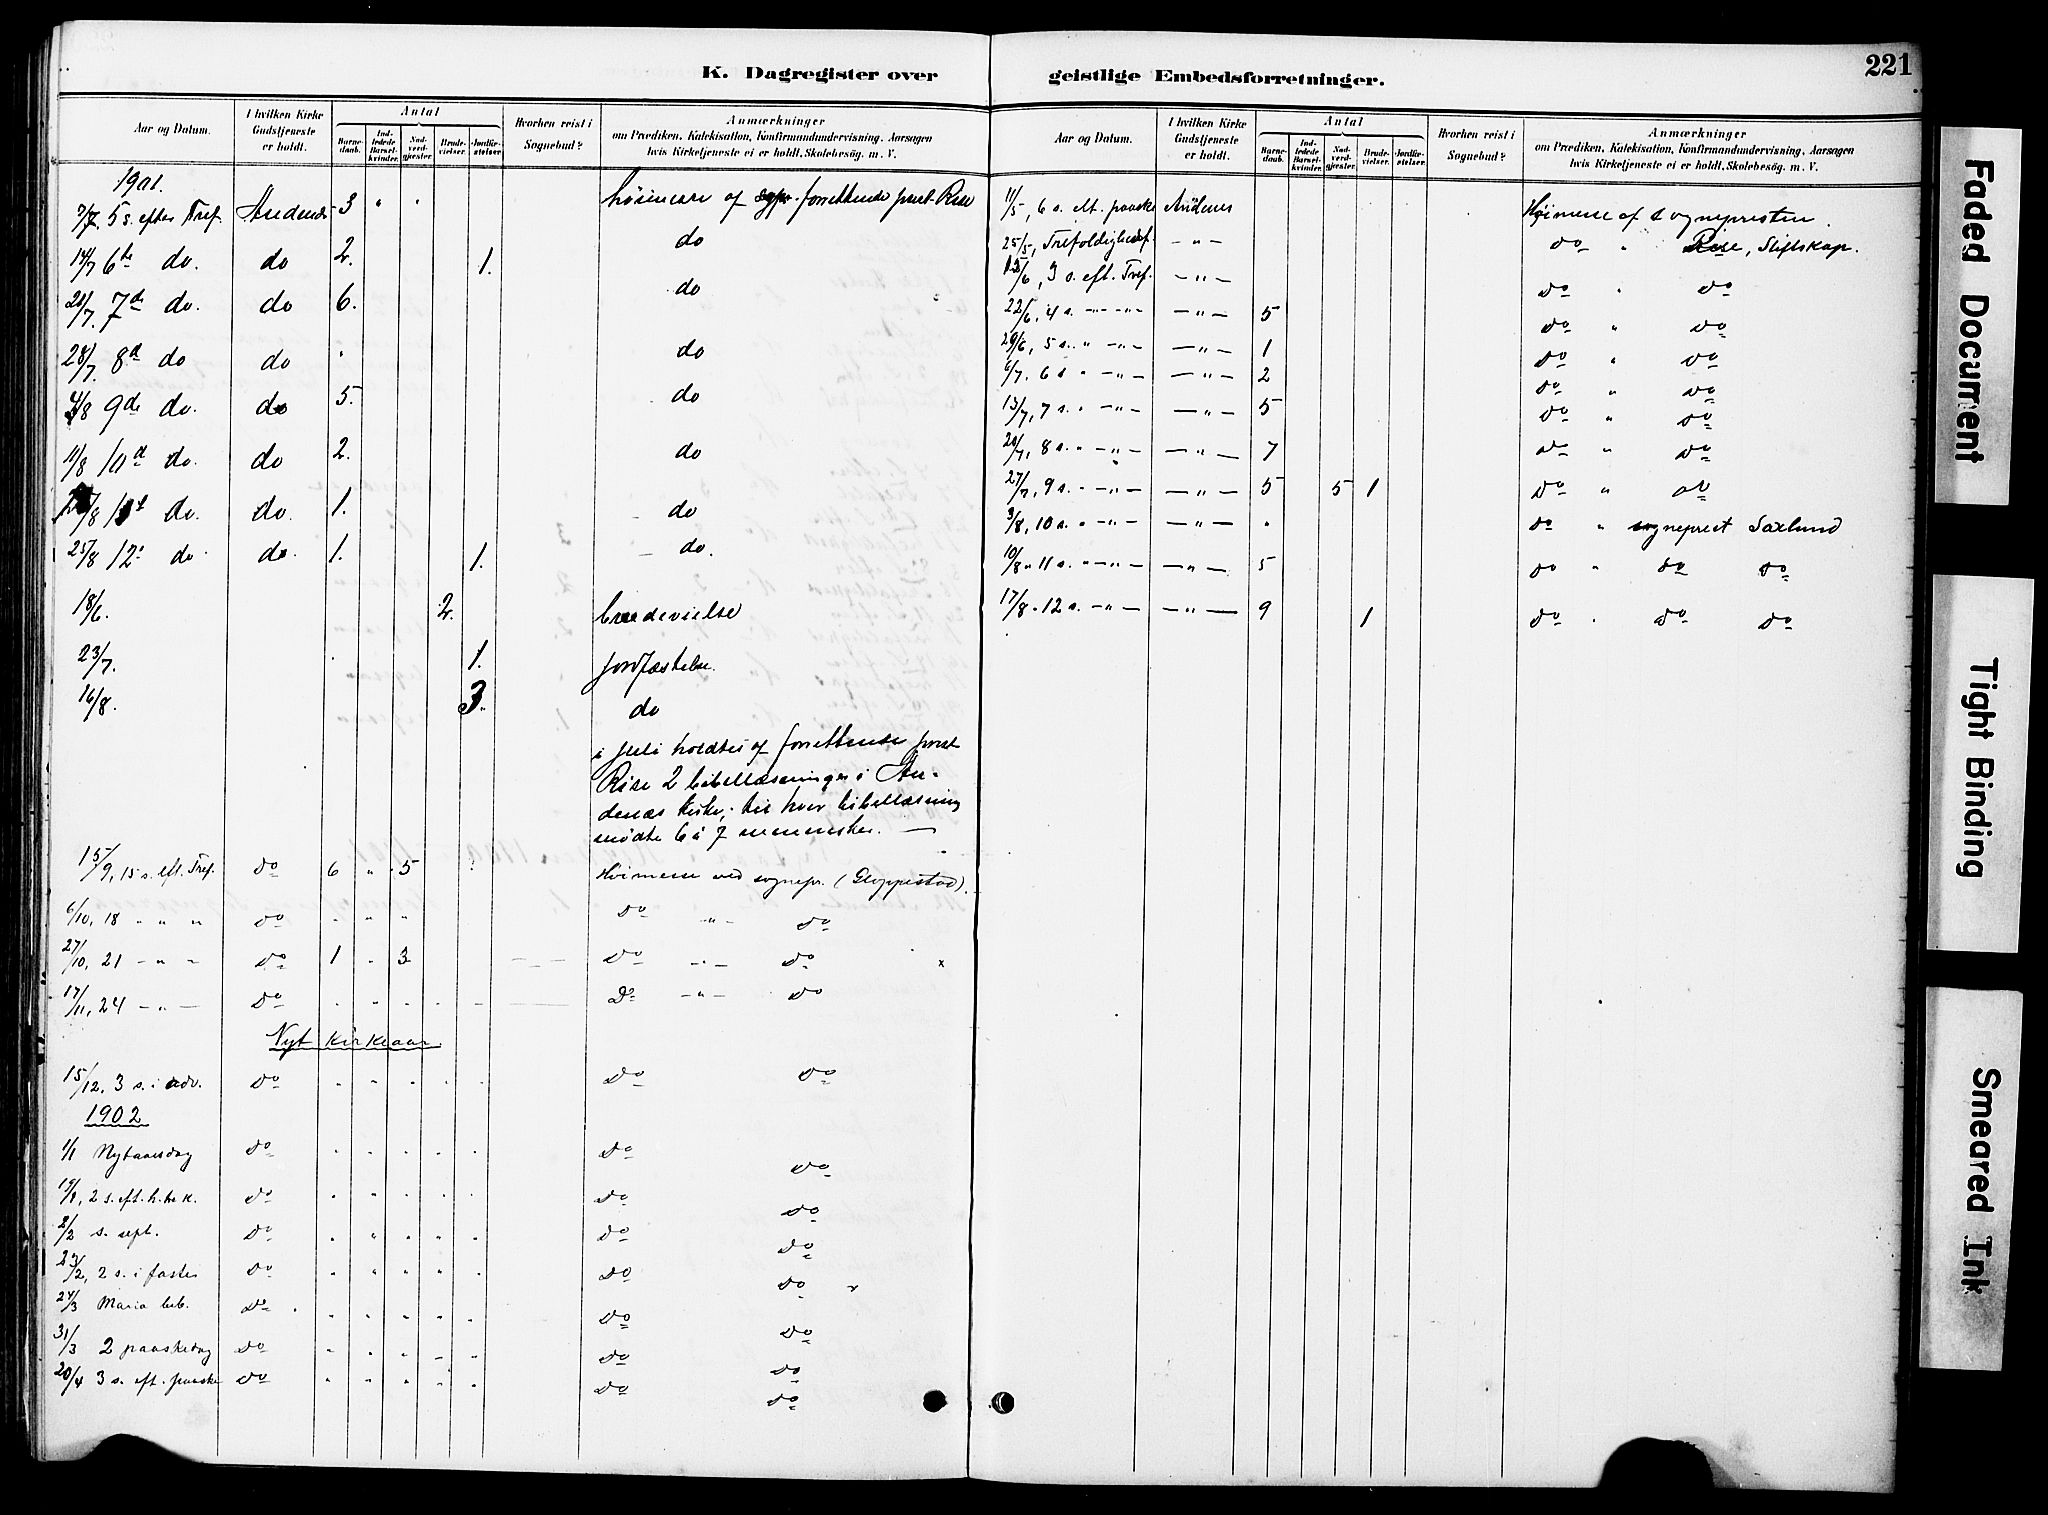 K. Dagregister over
Aar og Datum. I hvilken Kirke Gudstjeneste er holdt. Antal Barnedaab. Indledede Barselkvinder. Nadverdgjester. Brudevielser. Jordfæstelser. Hvorhen reist i Sognebud? Anmærkninger om Prædiken, Katekisation, Konfirmandundervisning, Aarsagen hvis Kirketjeneste ei er holdt, Skolebesög. m. V.
1901.
7/7. 5 s. efter Tref. Andenæs 3 " " høimesse af forrettende prest Rise
14/7 6te do. do 2. 1. do
21/7. 7de do. do 6. do
28/7. 8d do do " do
4/8 9de do. do 5. do
11/8 10d do. do 2. do
/8 do. do. 1. do
25/8 12. do do. 1. 1. do.
18/6. 2. brudevielse
23/7. 1. jordfæstelse.
16/8. 3. do
i juli holdtes af forrettende prest
Rise 2 bibellæsninger i An-
denæs kirke; til hver bibellæsning
mødte 6 a 7 mennesker. —
15/9, 15 s. eft. Tref. do 6 " 5 Høimesse ved sognepr. (Gloppestad).
6/10, 18 " " " do " " " do - " - do
27/10, 21 - " - do 1 " 3 do - " - do x
17/11, 24 - " - do " " " do - " - do
Nyt kirkeaar
15/12, 3 s. i adv. do " " " " " do do
1902
1/1 Nytaarsdag do " " " " " do do
19/1, 2 s. eft. h. tre k. do " " " " " do do
2/2 s. sept. do " " " " " do do
23/2, 2 s. i faste do " " " " " do do
24/3 Maria beb. do " " " " " do do
31/3 2 paaskedag do " " " " " do do
20/4 3 s. eft. paaske do " " " " " do do
geistlige Embedsforretninger.
221
Aar og Datum. I hvilken Kirke Gudstjeneste er holdt. Antal Barnedaab. Indledede Barselkvinder. Nadverdgjester. Brudevielser. Jordfæstelser. Hvorhen reist i Sognebud? Anmærkninger om Prædiken, Katekisation, Konfirmandundervisning, Aarsagen hvis Kirketjeneste ei er holdt, Skolebesög. m. V.
11/5, 6 s. eft. paaske Andenes Høimesse af sognepresten
25/5, Trefoldighedsf. - " - do " Rise, Stiftskap.
15/6, 3 s. eft. Tref. - " - do " do
22/6, 4 s. - " - " - - " - 5 do " do
29/6, 5 s. " - " - - " - 1 do " do
6/7. 6 s " - " - - " - 2 do " do
13/7, 7 s. " - " - - " - 5 do " do
20/7, 8 s. " - " - - " - 7 do " do
27/7, 9 s. - " - - " - 5 5 1 do " do
3/8, 10 s. " - " - - " - " do " sogneprest Saxlund
10/8. 11 s. " - " - - " - 5 do " do do
17/8. 12 s. - " - - " - 9 1 do " do do
Faded Document
Tight Binding
Smeared Ink